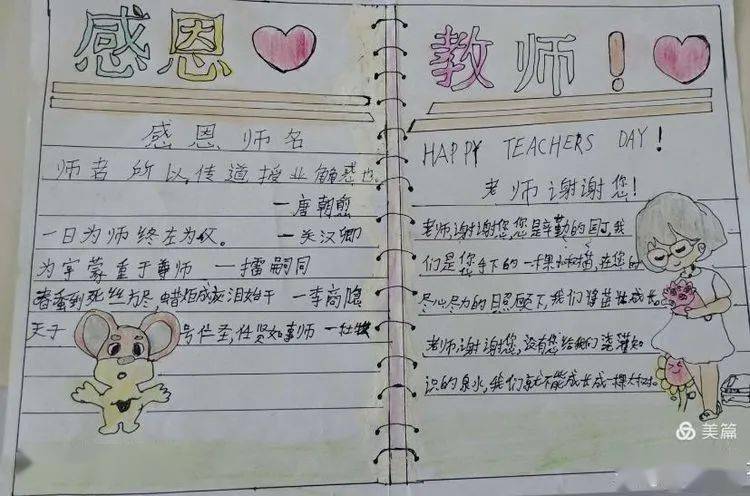 感恩
感恩师名
师者所以,传道授业解惑也。
一唐朝愈
一日为师终左为父。 一关汉卿
为宇蒙重于尊师 一擂嗣同
春蚕到死丝方尽 蜡炬成灰泪始干 一李商隐
天子 号仁圣,任贤如事师 一杜牧
教师!
HAPPY TEACHERS DAY!
老师谢谢您!
老师谢谢您您是辛勤的园丁,我
们是您手下的一 树苗,在您的
尽心尽力的 照顾下,我们 茁壮成长。
老师谢谢您,没有您给我们浇灌知
识的泉水,我们就不能成长成一棵大树。
美篇